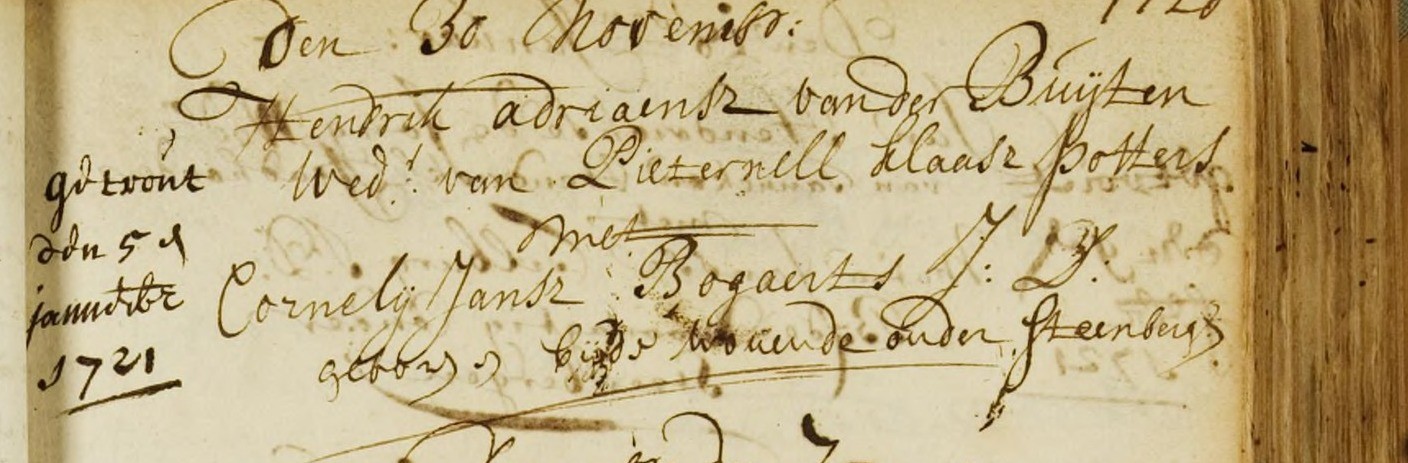 1720
Den 30 Novembr:
Hendrik adriaensz vander Buijten
Wedr. van Pieternell klaasz potters
met
Cornelij Jansz Bogaerts J: D.
geboren en beijde wonende onder Steenbergen
getrout
den 5 d
januaer
1721